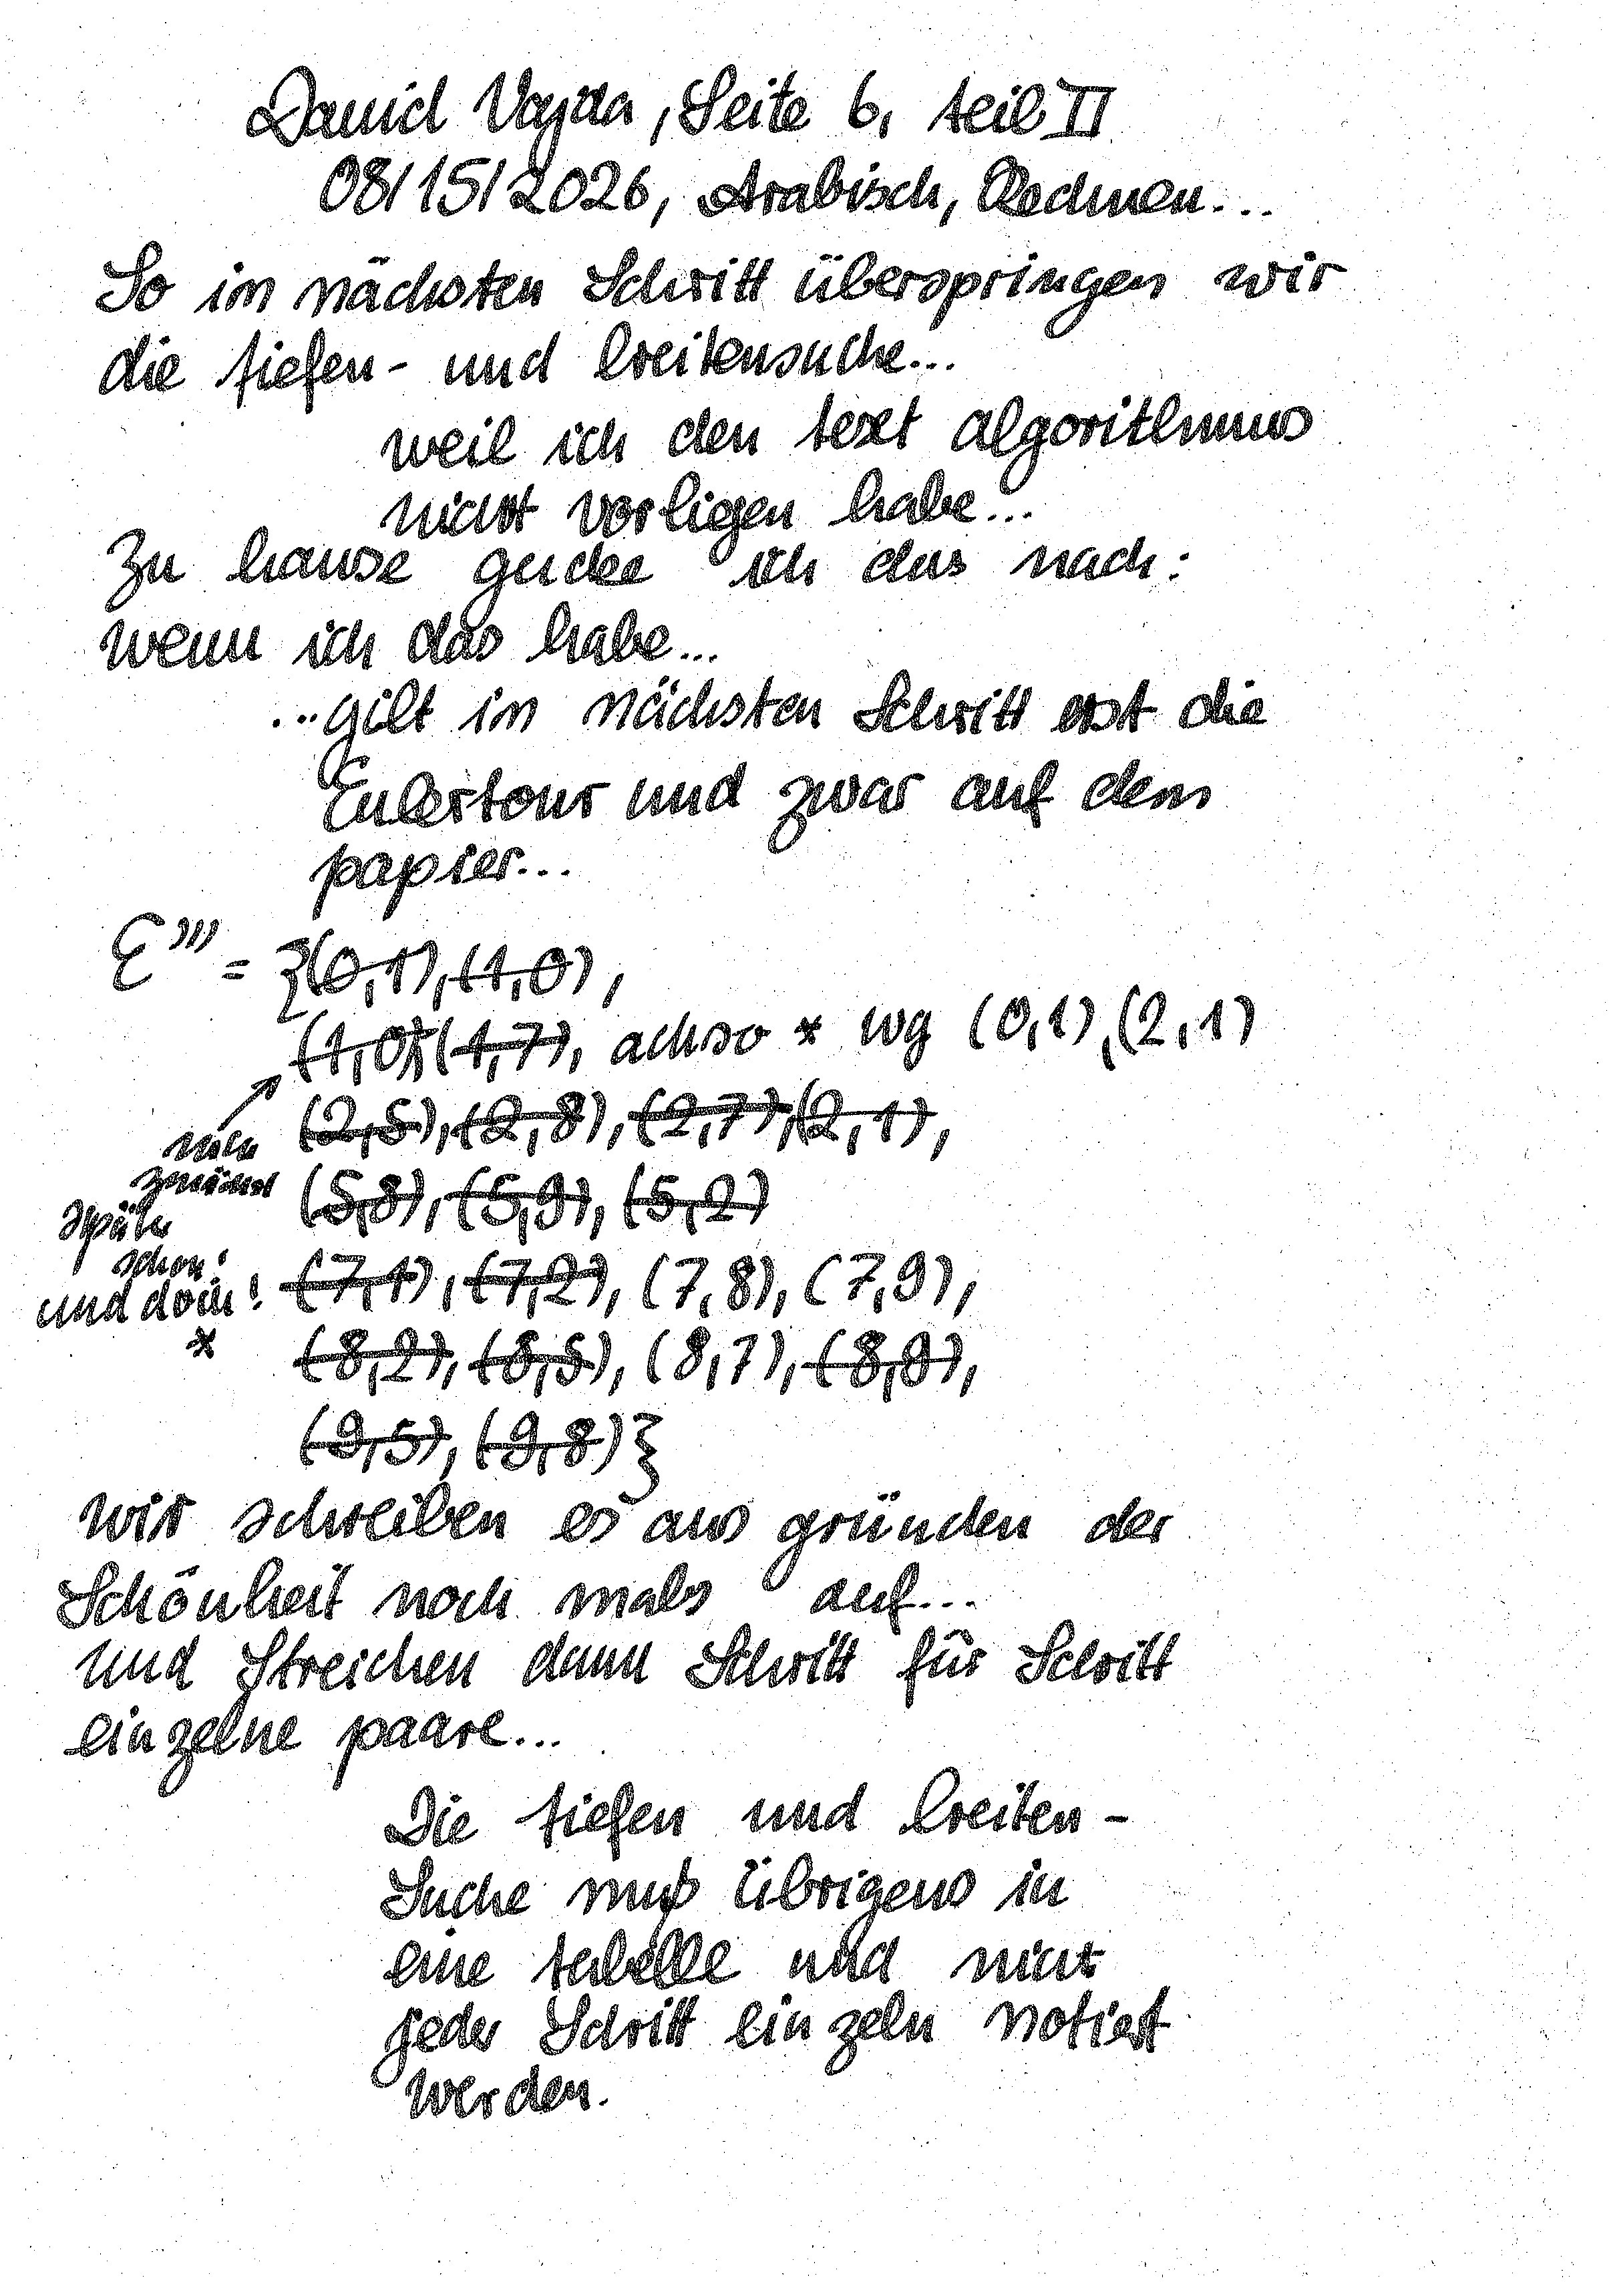 David Vajda, Seite 6, teil II
08/15/2026, Arabisch, Rechnen...
So im nächsten Schritt überspringen wir
die tiefen- und breitensuche...
weil ich den text algorithmus
nicht vorligen habe...
Zu hause gucke ich das nach:
wenn ich das habe...
...gilt im nächsten Schritt erst die
Eulertour und zwar auf dem
papier...
E''' = {(0,1), (1,0),
(1,0), (1,7), achso * wg (0,1), (2,1)
(2,5), (2,8), (2,7), (2,1),
(5,8), (5,9), (5,2)
(7,1), (7,2), (7,8), (7,9),
(8,2), (8,5), (8,7), (8,9),
(9,5), (9,8)}
zunächst
später
schon!
und doch!
*
wir schreiben es aus gründen der
Schönheit noch mals auf...
und Streichen dann Schritt für Schritt
einzelne paare...
Die tiefen und breiten-
Suche muß übrigens in
eine tabelle und nicht
jeder Schritt ein zeln notiert
werden.